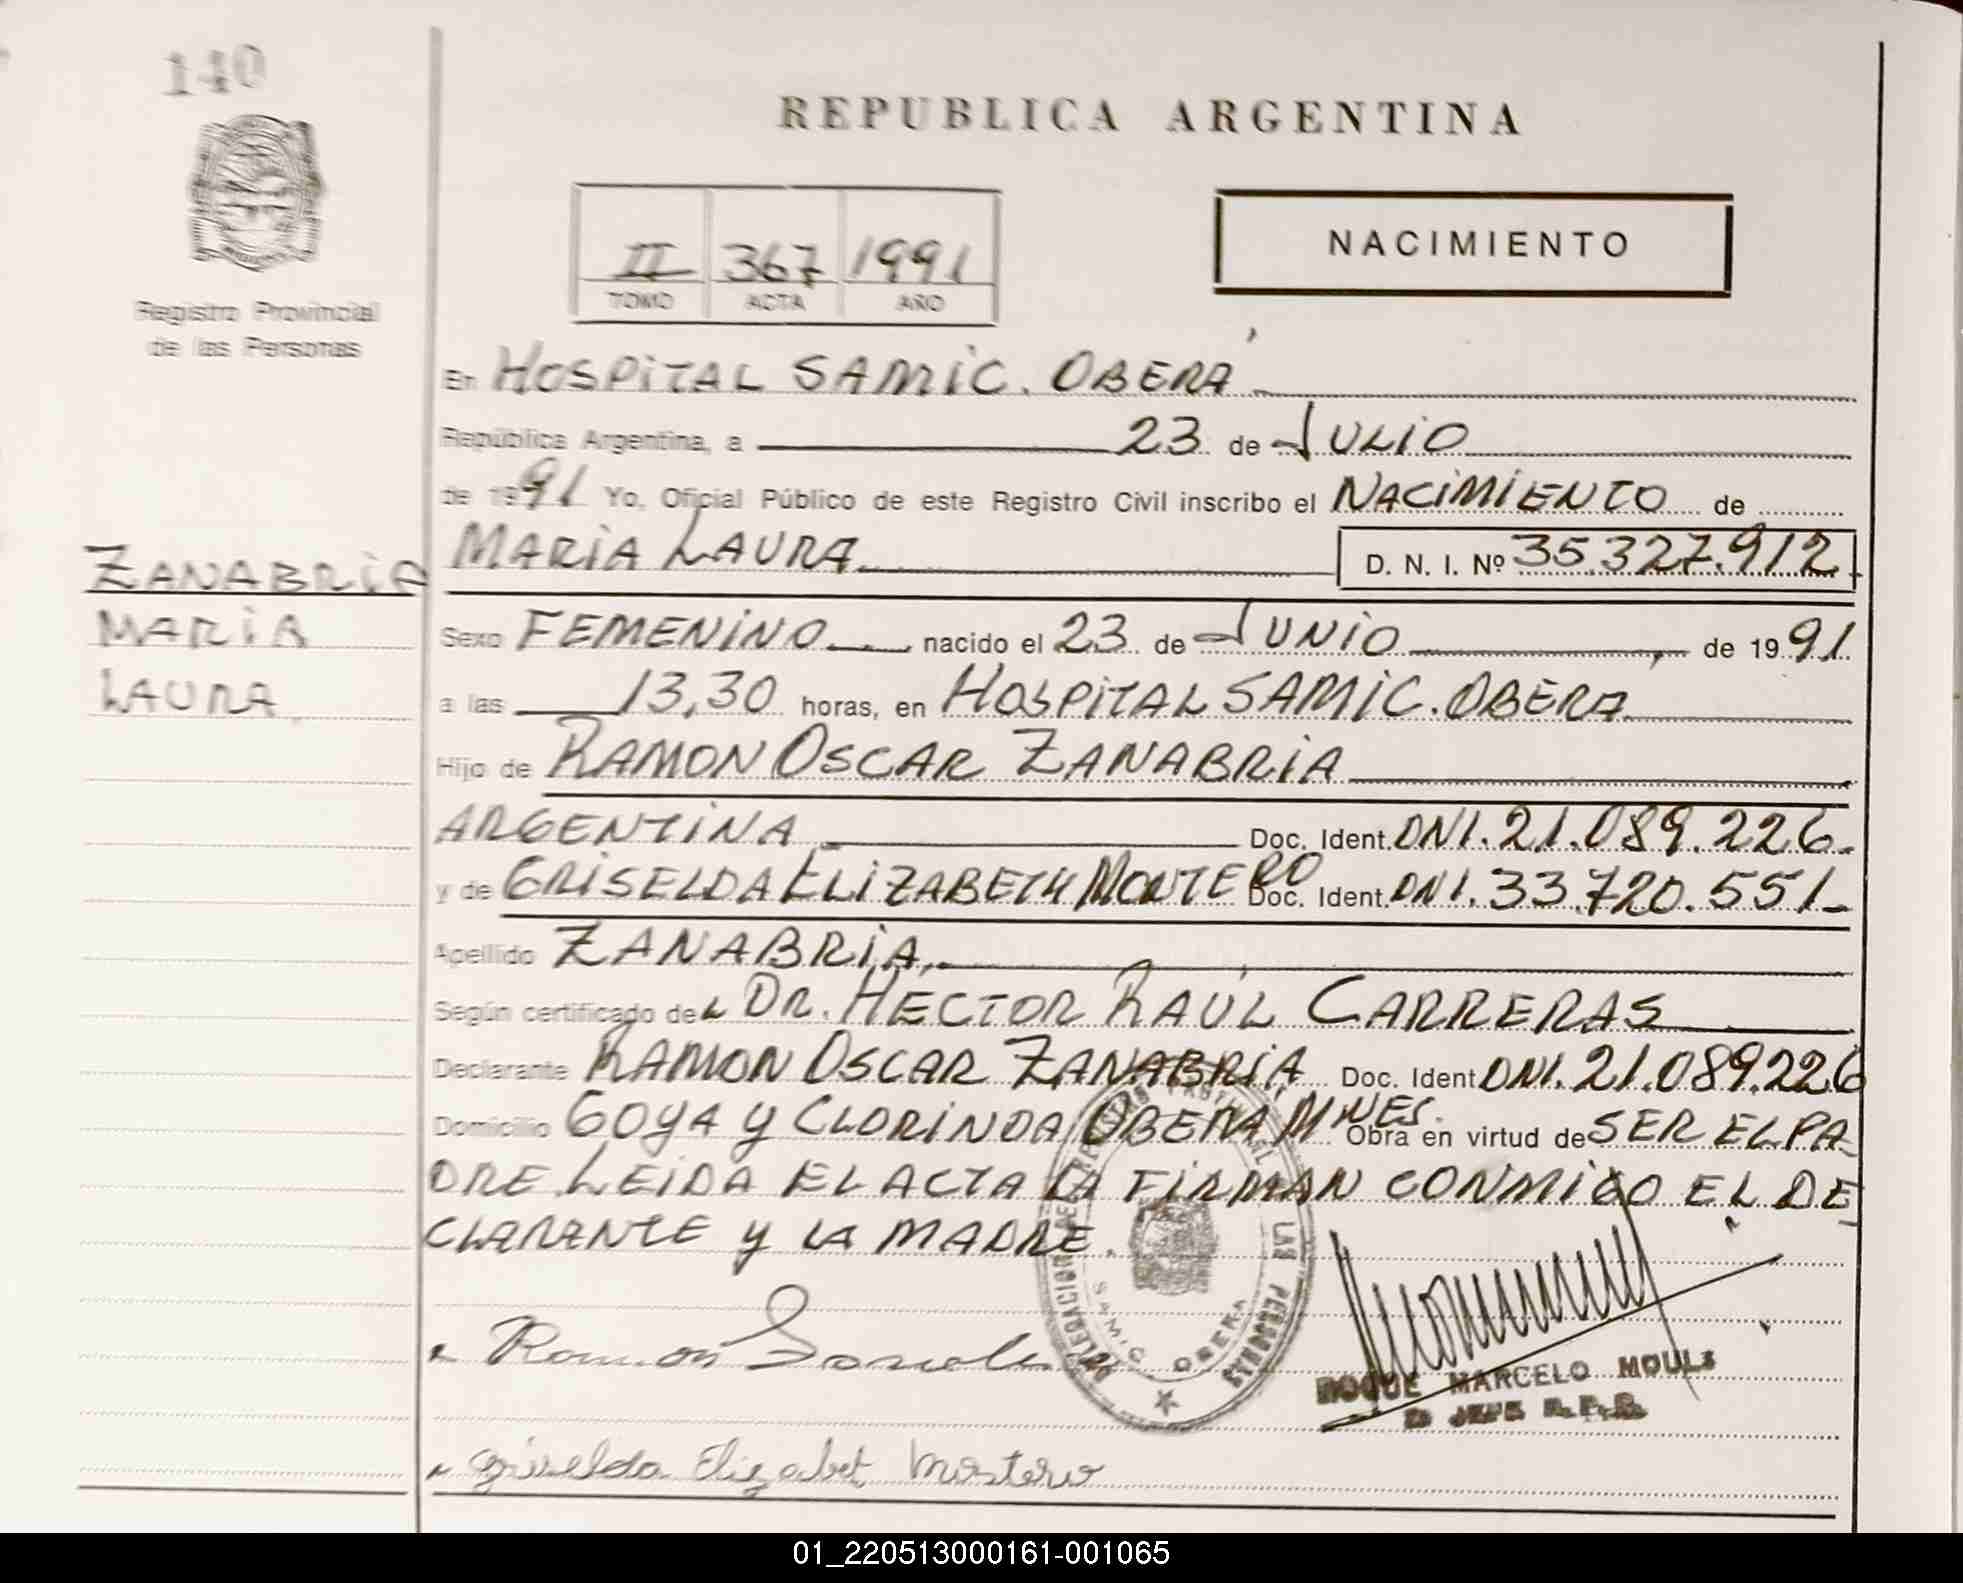 140
REPUBLICA ARGENTINA
II 367 1991
TOMO ACTA AÑO
NACIMIENTO
Registro Provincial
de las Personas
En HOSPITAL SAMIC. OBERÁ
República Argentina, a 23 de JULIO
de 1991 Yo, Oficial Público de este Registro Civil inscribo el NACIMIENTO de
MARIA LAURA D. N. I. Nº 35.327.912
ZANABRIA
MARIA
LAURA
Sexo FEMENINO nacido el 23 de JUNIO, de 1991
a las 13,30 horas, en HOSPITAL SAMIC. OBERA
Hijo de RAMON OSCAR ZANABRIA
ARGENTINA Doc. Ident. DNI. 21.089.226.
y de GRISELDA ELIZABETH MONTERO Doc. Ident. DNI. 33.720.551-
Apellido ZANABRIA
Según certificado del DR. HÉCTOR RAÚL CARRERAS
Declarante RAMON OSCAR ZANABRIA Doc. Ident. DNI. 21.089.226
Domicilio GOYA y CLORINDA OBERA MNES. Obra en virtud de SER EL PA
DRE LEIDA EL ACTA LA FIRMAN CONMIGO EL DE
CLARANTE y LA MADRE.
DELEGACION DEL REGISTRO PROVINCIAL DE LAS PERSONAS
SAMIC OBERA
Ramon
ROQUE MARCELO MOULS
JEFE R.P.P.
Griselda Elizabet Montero
01_220513000161-001065